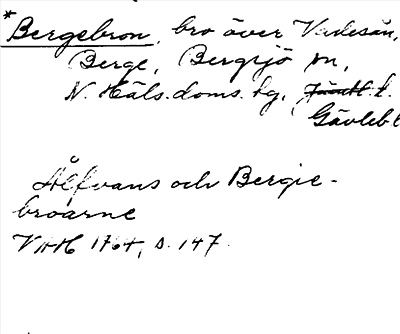 *Bergebron, bro över Vadesån,
Berge, Bergsjö sn,
N. Häls. doms. hg, Jämtl. l.
Gävleb l
Älfvans och Bergie-
broarne
VAH 1764, s. 147.